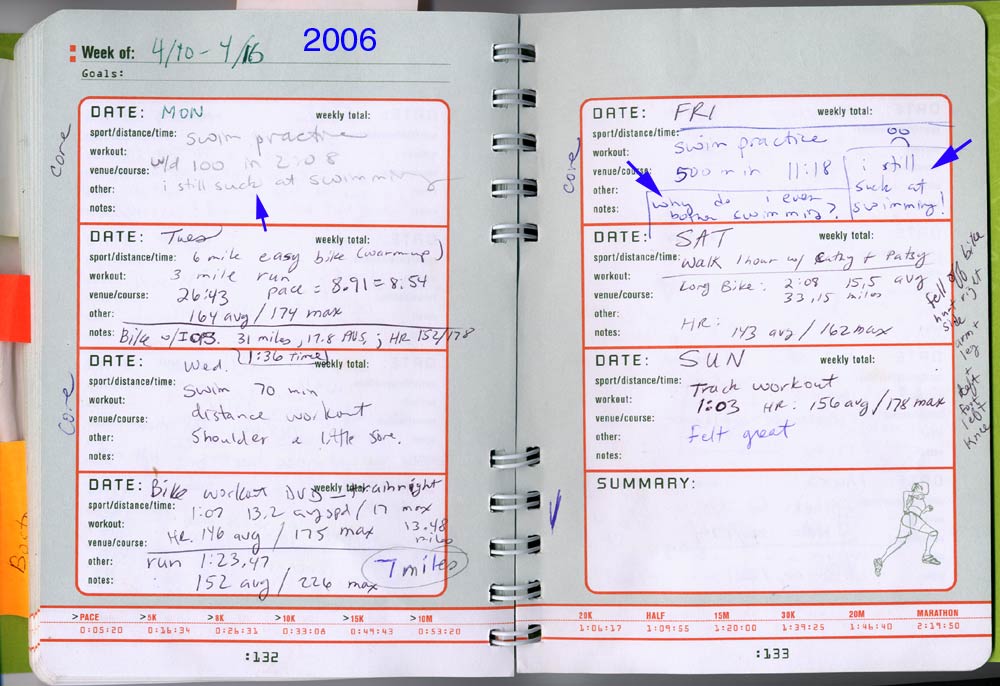 2006
Week of: 4/10 - 4/16
Goals:
core
DATE: MON weekly total:
sport/distance/time: swim practice
workout: w/d 100 in 2:08
venue/course:
other: i still suck at swimming
notes:
DATE: Tues weekly total:
sport/distance/time: 6 mile easy bike (warmup)
workout: 3 mile run
venue/course: 26:43 pace = 8.91 = 8:54
other: 164 avg / 174 max
notes: Bike w/ 31 miles, 17.8 AVG, ; HR 152/178
(1:36 time)
core
DATE: Wed. weekly total:
sport/distance/time: Swim 70 min
workout: distance workout
venue/course:
other: Shoulder a little sore.
notes:
DATE: Bike workout DVD - trainright weekly total:
sport/distance/time: 1:07 13.2 avg spd / 17 max
workout: HR. 146 avg / 175 max 13.48 miles
venue/course:
other: run 1:23.47 7 miles
notes: 152 avg / 226 max
>PACE >5K >8K >10K >15K >10M
0:05:20 0:16:34 0:26:31 0:33:08 0:49:43 0:53:20
:132
core
DATE: FRI weekly total:
sport/distance/time: swim practice
workout:
venue/course: 500 in 11:18
other: i still suck at swimming!
notes: why do i even bother swimming?
DATE: SAT weekly total:
sport/distance/time: Walk 1 hour w/ Cathy + Patsy
workout: Long Bike: 2:08 15.5 avg
venue/course: 33.15 miles
other: HR: 143 avg / 162 max
notes:
fell off bike
hurt right
side
arm +
leg
left
knee
DATE: SUN weekly total:
sport/distance/time: Track workout
workout: 1:03 HR: 156 avg / 178 max
venue/course:
other: Felt great
notes:
SUMMARY:
20K HALF 15M 30K 20M MARATHON
1:06:17 1:09:55 1:20:00 1:39:25 1:46:40 2:19:50
:133